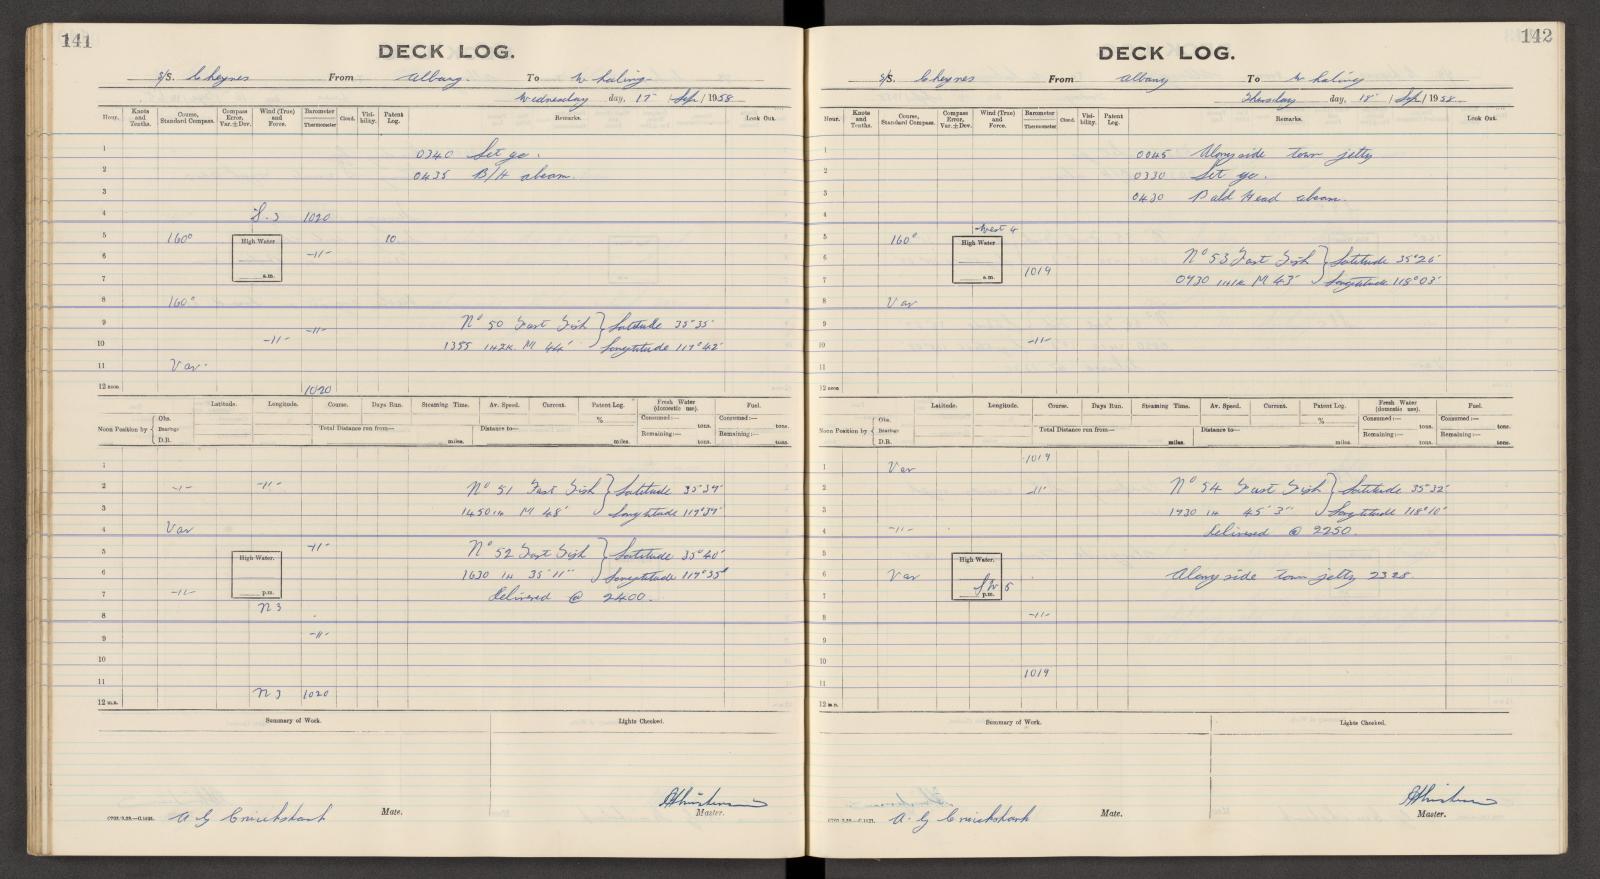 141
DECK LOG.
S/S. Cheynes From Albany. To Whaling
Wednesday day, 17 / Sep / 1958
Hour. Knots and Tenths. Course, Standard Compass. Compass Error, Var. ± Dev. Wind (True) and Force. Barometer Thermometer Cloud. Visibility. Patent Log. Remarks. Look Out.
1
0340 Set go.
2 0435 B/H abeam.
3
4 S. 3 1020
5 160° High Water 10
6 -11-
7 a.m.
8 160°
9 -11- No 50 Fast Fish } Latitude 35°35'
10 -11- 1355 M 44' Longtitude 117°42'
11 Var.
12 noon 1020
Latitude. Longitude. Course. Days Run. Steaming Time. Av. Speed. Current. Patent Log. Fresh Water (domestic use). Fuel.
Noon Position by { Obs. Bearings D.R. Total Distance run from— miles. Distance to— miles. % Consumed:— tons. Remaining:— tons. Consumed:— tons. Remaining:— tons.
1
2 -11- -11- No 51 Fast Fish } Latitude 35°39'
3 1450 M 48' Longtitude 117°39'
4 Var
5 High Water. -11- No 52 Fast Fish } Latitude 35°40'
6 1630 35' 11" Longtitude 117°35'
7 -11- p.m. delivered @ 2400.
N 3
8
9 -11-
10
11
N 3 1020
12 m.n.
Summary of Work. Lights Checked.
A G Cruickshank Mate. Master.
142
DECK LOG.
S/S. Cheynes From Albany To Whaling
Thursday day, 18 / Sep / 1958
Hour. Knots and Tenths. Course, Standard Compass. Compass Error, Var. ± Dev. Wind (True) and Force. Barometer Thermometer Cloud. Visibility. Patent Log. Remarks. Look Out.
1 0045 Alongside town jetty
2 0330 Set go.
3 0430 Bald Head abeam.
4
West 4
5 160° High Water
6 No 53 Fast Fish } Latitude 35°26'
7 a.m. 1019 0930 M 43' Longtitude 118°03'
8 Var
9
10 -11-
11
12 noon
Latitude. Longitude. Course. Days Run. Steaming Time. Av. Speed. Current. Patent Log. Fresh Water (domestic use). Fuel.
Noon Position by { Obs. Bearings D.R. Total Distance run from— miles. Distance to— miles. % Consumed:— tons. Remaining:— tons. Consumed:— tons. Remaining:— tons.
1 Var 1019
2 -11- No 54 Fast Fish } Latitude 35°32'
3 1730 45' 3" Longtitude 118°10'
4 -11- delivered @ 2250.
5 High Water.
6 Var Alongside town jetty 2325
7 SW 5 p.m.
8 -11-
9
10
1019
11
12 m.n.
Summary of Work. Lights Checked.
A. G Cruickshank Mate. Master.